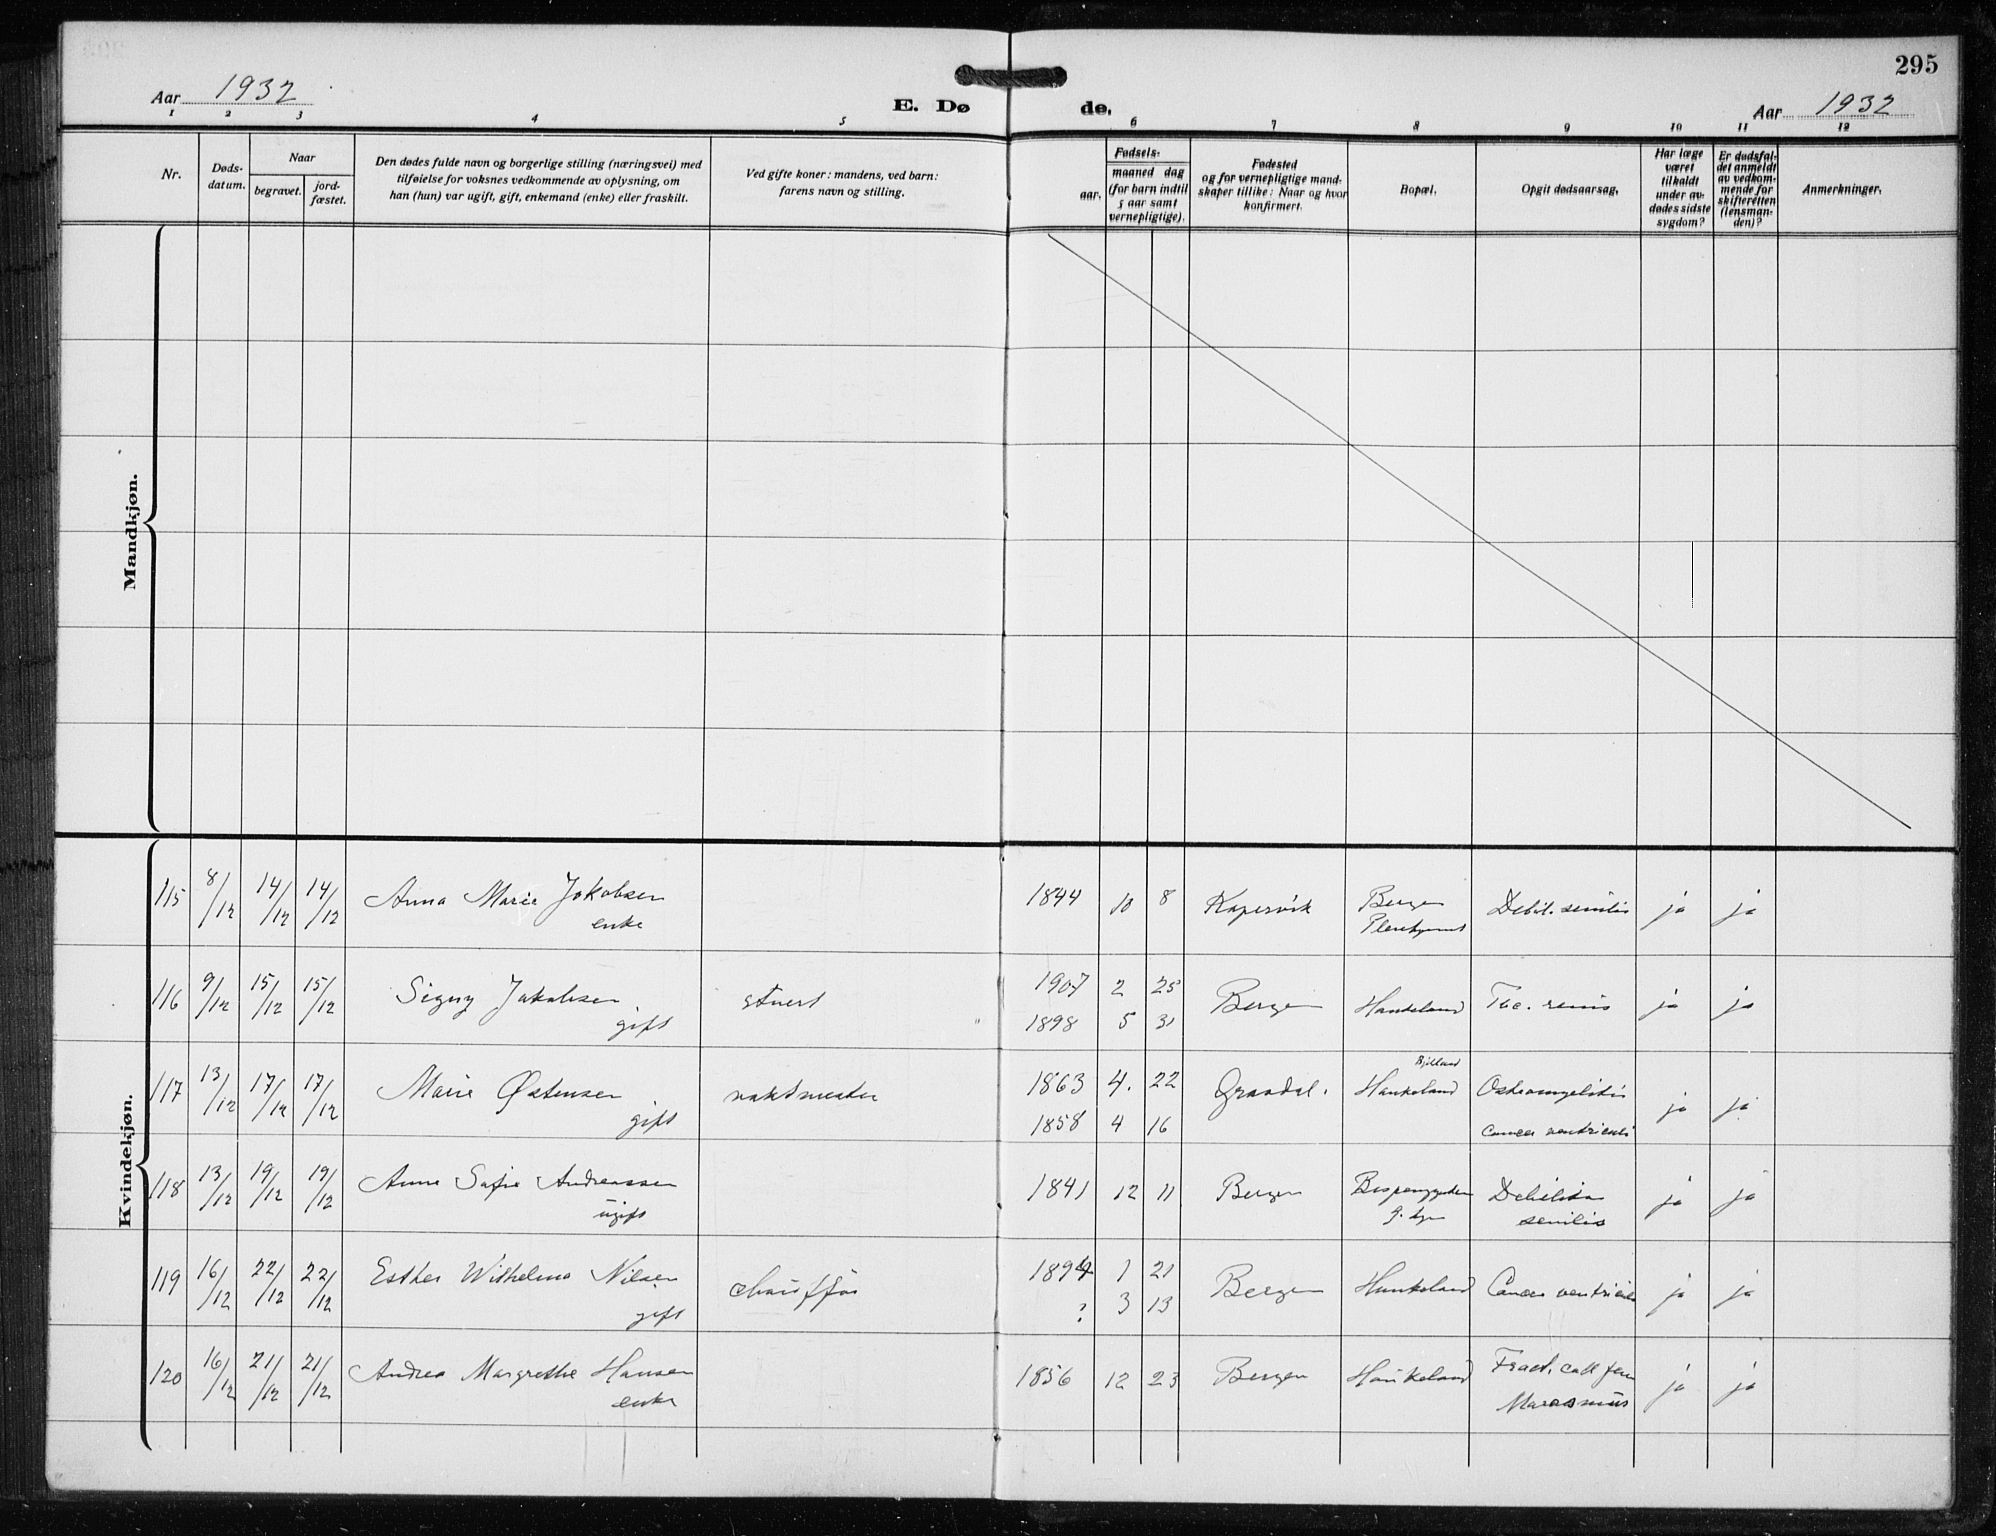 295
Aar 1932
E. Dø de.
Aar 1932
1 2 3 4 5 6 7 8 9 10 11 12
Nr.
Døds-
datum.
Naar
begravet.
jord-
fæstet.
Den dødes fulde navn og borgerlige stilling (næringsvei) med
tilføielse for voksnes vedkommende av oplysning, om
han (hun) var ugift, gift, enkemand (enke) eller fraskilt.
Ved gifte koner: mandens, ved barn:
farens navn og stilling.
Fødsels-
aar.
maaned dag
(for barn indtil
5 aar samt
vernepligtige).
Fødested
og for vernepligtige mand-
skaper tillike: Naar og hvor
konfirmert.
Bopæl.
Opgit dødsaarsag.
Har læge
været
tilkaldt
under av-
dødes sidste
sygdom?
Er dødsfal-
det anmeldt
av vedkom-
mende for
skifteretten
(lensman-
den)?
Anmerkninger.
Mandkjøn.
Kvindekjøn.
115 8/12 14/12 14/12 Anna Marie Jakobsen 1844 10 8 Kopervik Bergen Debil. senilis ja ja
enke
116 9/12 15/12 15/12 Signy Jakobsen stuert 1907 2 25 Bergen Haukeland Tbc. renis ja ja
gift 1898 5 31
117 13/12 17/12 17/12 Marie Østensen vaktmester 1863 4. 22 Graadal. Haukeland Osteomyelitis ja ja
gift 1858 4 16 Cancer ventriculi
118 13/12 19/12 19/12 Anne Sofie Andreassen 1841 12 11 Bergen Debilitas ja ja
ugift senilis
119 16/12 22/12 22/12 Esther Wilhelmo Nilsen chauffør 1894 1 21 Bergen Haukeland Cancer ventriculi ja ja
gift ? 3 13
120 16/12 21/12 21/12 Andrea Margrethe Hansen 1856 12 23 Bergen Haukeland Fract. coll fem ja ja
enke Marasmus